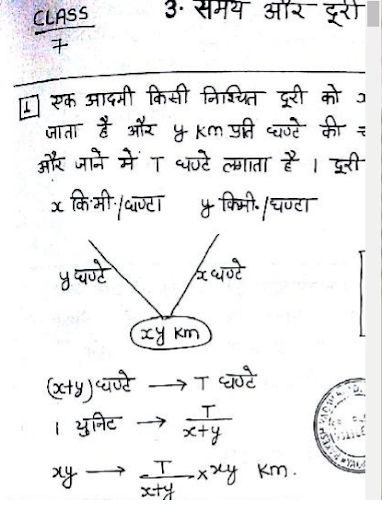 CLASS
7
3. समय और दूरी
1 एक आदमी किसी निश्चित दूरी को x
जाता है और y km प्रति घण्टे की च
और जाने में T घण्टे लगाता है । दूरी
x कि.मी./घण्टा y किमी./घण्टा
y घण्टे x घण्टे
xy km
(x+y) घण्टे → T घण्टे
1 युनिट → T/x+y
xy → T/x+y × xy km.